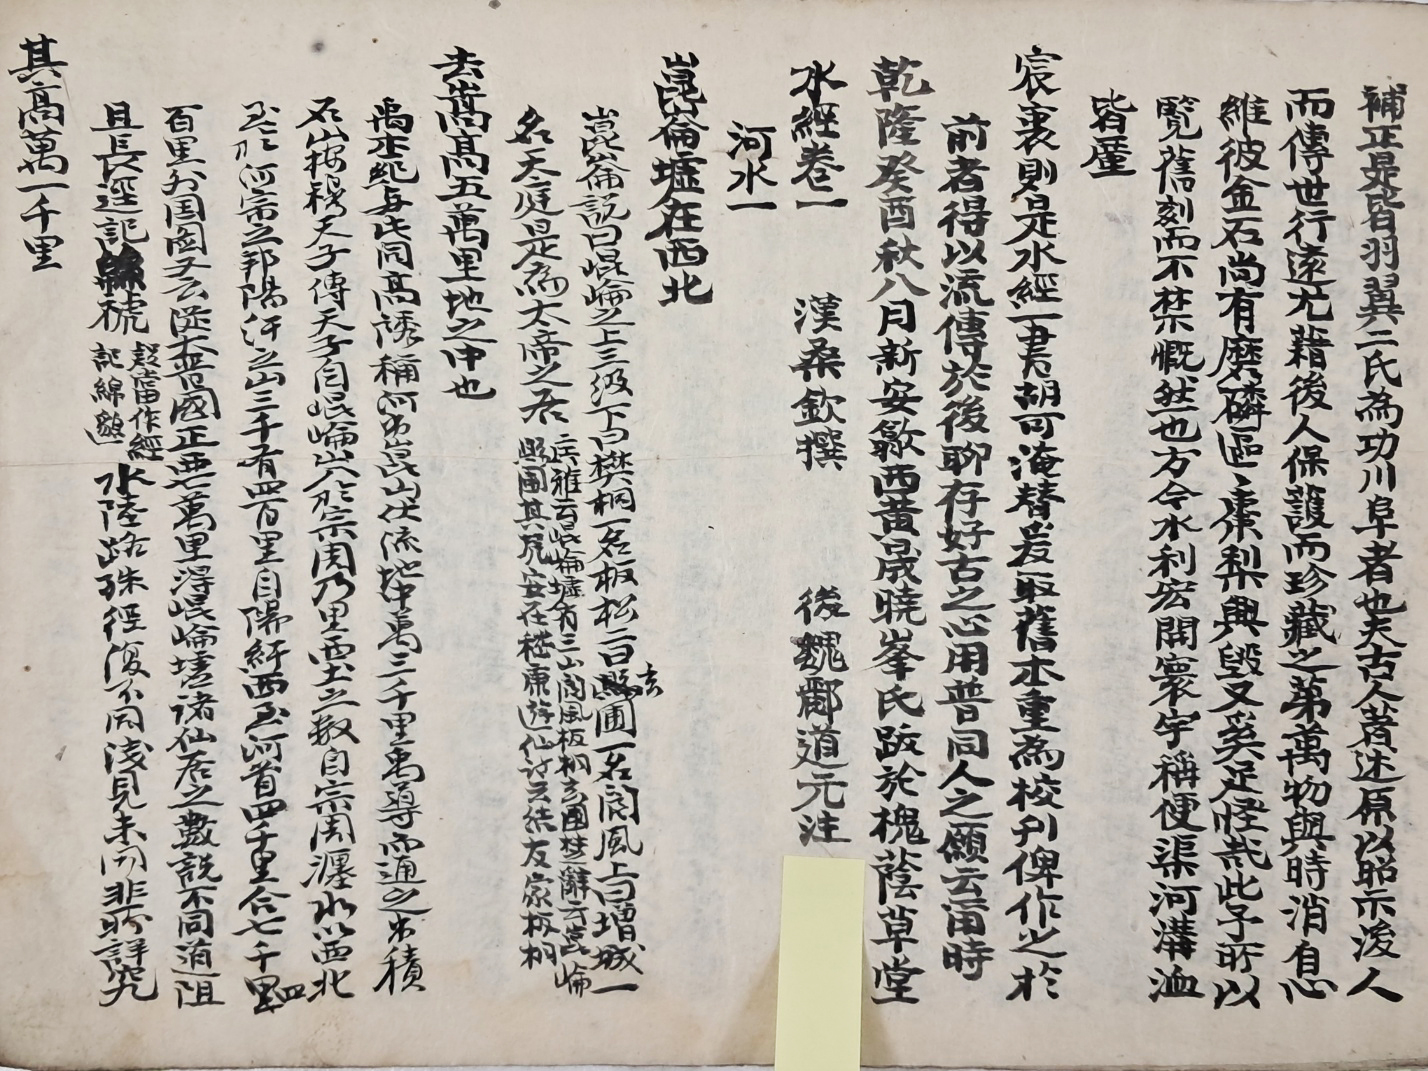 補正是皆羽翼二氏為功川阜者也夫古人著述原以昭示後人
而傳世行遠尤藉後人保護而珍藏之第萬物與時消息心
維彼金石尚有磨磷區〻棗梨興毀又奚足怪哉此予所以
覧舊刻而不禁慨然也方今水利宏開寰宇稱便渠河溝洫
皆厪
宸衷則是水經一書胡可淹替爰取舊本重為校刋俾作之於
前者得以流傳於後聊存好古之心用普同人之願云甭時
乾隆癸酉秋八月新安歙西黃晟曉峯氏跋於槐蔭草堂
水經卷一 漢桑欽撰 後魏酈道元注
河水一
崑崙墟在西北
崑崙說曰崐崘之上三级下曰樊桐一名板松二曰玄圃一名閬風上曰增城一
名天庭是為太帝之居 廣雅云崐崘墟有三山閬風板桐玄圃楚辭云崑崘
縣圃其尻安在嵇康遊仙詩云結友家板桐
去嵩高五萬里地之中也
禹本紀与此同高誘稱河出崑山伏流地中萬三千里禹導而通之出積
石山按穆天子傳天子自崐崘山入於宗周乃里西土之数自宗周瀍水以西北
至於河宗之邦陽紆之山三千有四百里自陽紆西至河首四千里合七千四
百里外國圖又云從大晉國正西七萬里得崐崘墟諸仙居之數說不同道阻
且長逕記緜褫 褫當作經記綿邈 水陸路殊徑復不同淺見未聞非所詳究
其高萬一千里